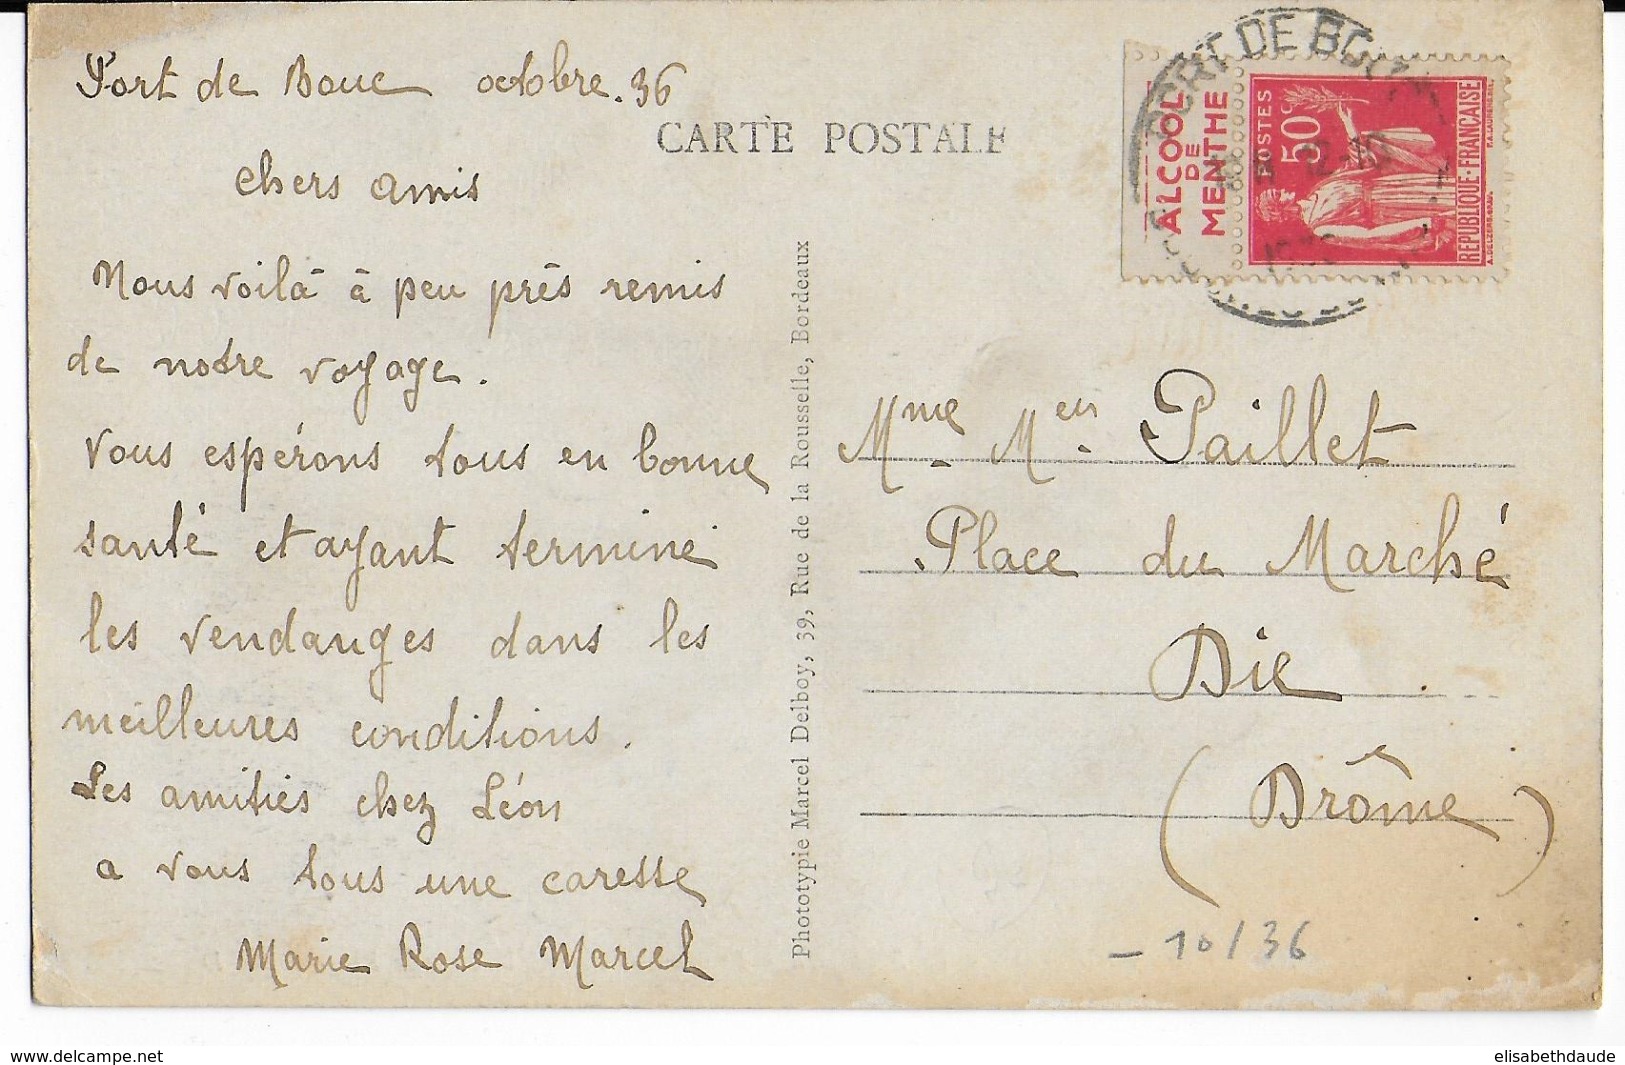 Port de Bouc octobre.36
CARTE POSTALE
chers amis
Nous voilà à peu près remis
de notre voyage.
vous espérons tous en bonne
santé et ayant terminé
les vendanges dans les
meilleures conditions.
Les amitiés chez Léon
a vous tous une caresse
Marie Rose Marcel
Phototypie Marcel Delboy, 39, Rue de la Rousselle, Bordeaux
PORT DE BOUC
12-10
ALCOOL
DE
MENTHE
POSTES
50c
REPUBLIQUE·FRANÇAISE
Mme Mer Paillet
Place du Marché
Die
(Drôme)
- 10/36
www.delcampe.net
elisabethdaude